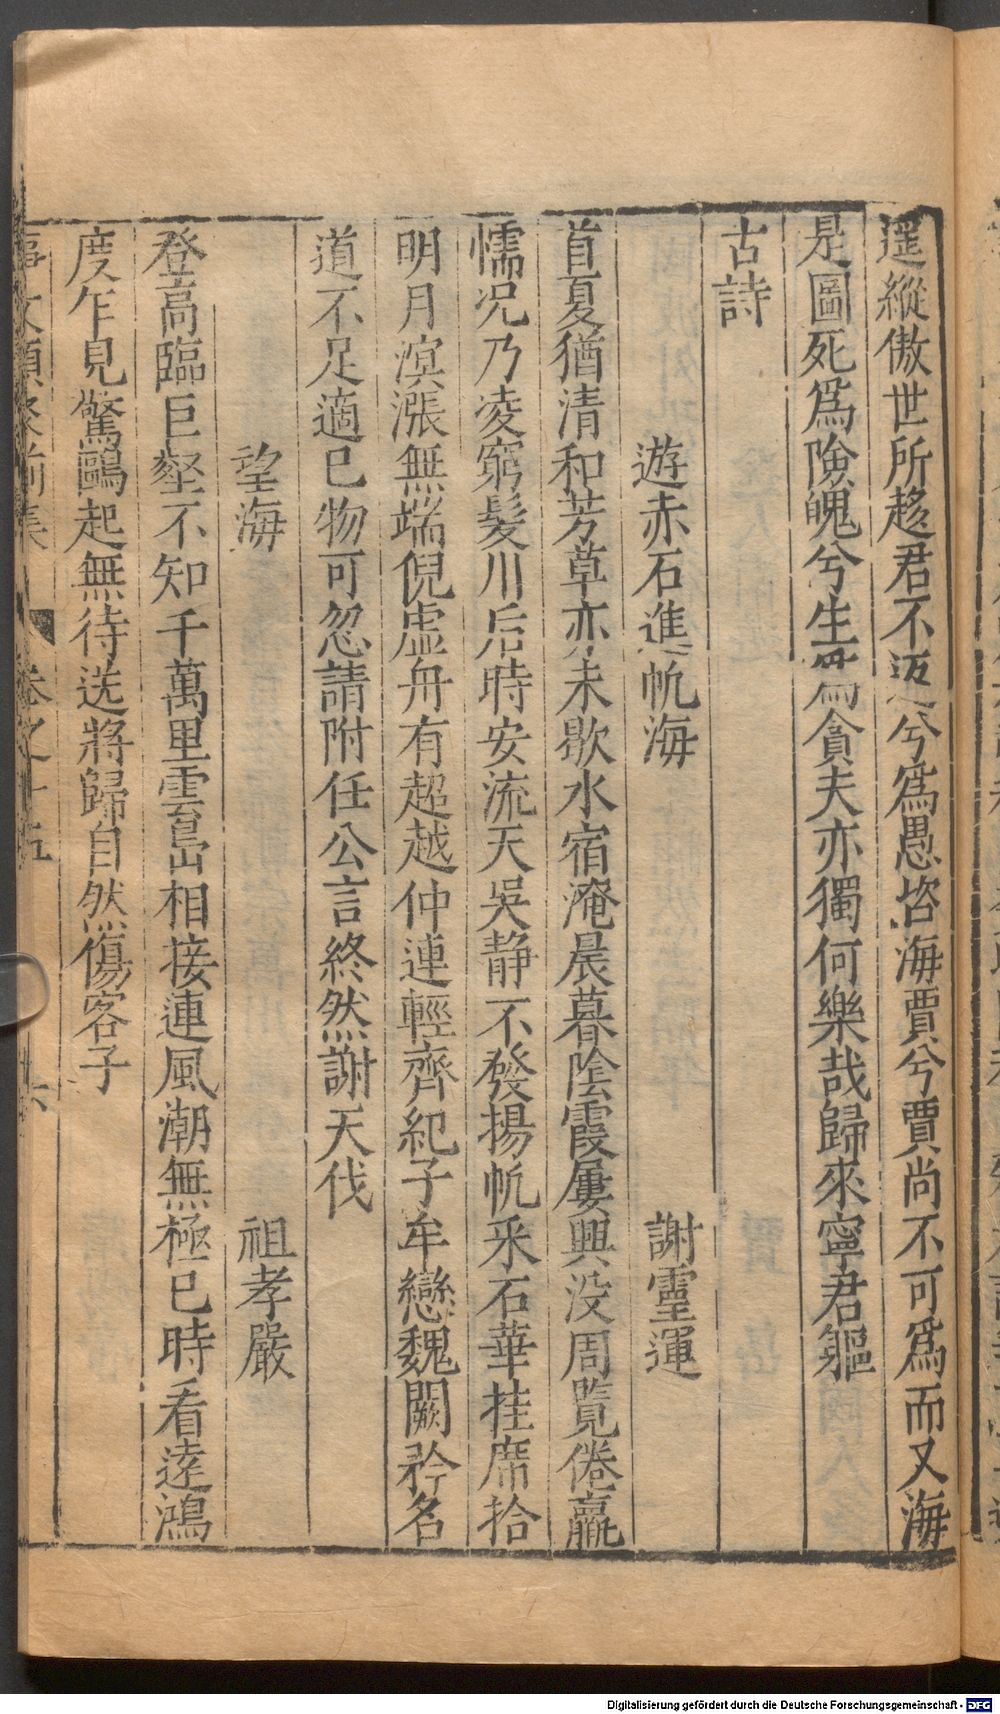 遥縱傲世所趍君不返兮爲愚咨海賈兮賈尚不可爲而又海
是圖死爲險魄兮生爲貪夫亦獨何樂哉歸來寧君軀
古詩
遊赤石進帆海 謝靈運
首夏猶清和芳草亦未歇水宿淹晨暮陰霞屢興没周覽倦瀛
懦况乃凌窮髮川后時安流天吴静不發揚帆采石華挂席拾
明月溟漲無端倪虚舟有超越仲連輕齊紀子牟戀魏闕矜名
道不足適已物可忽請附任公言終然謝天伐
望海 祖孝嚴
登高臨巨壑不知千萬里雲島相接連風潮無極已時看逵鴻
度乍見驚鷗起無待送將歸自然傷客子
事文類聚前集 卷之十五 十六
Digitalisierung gefördert durch die Deutsche Forschungsgemeinschaft - DFG